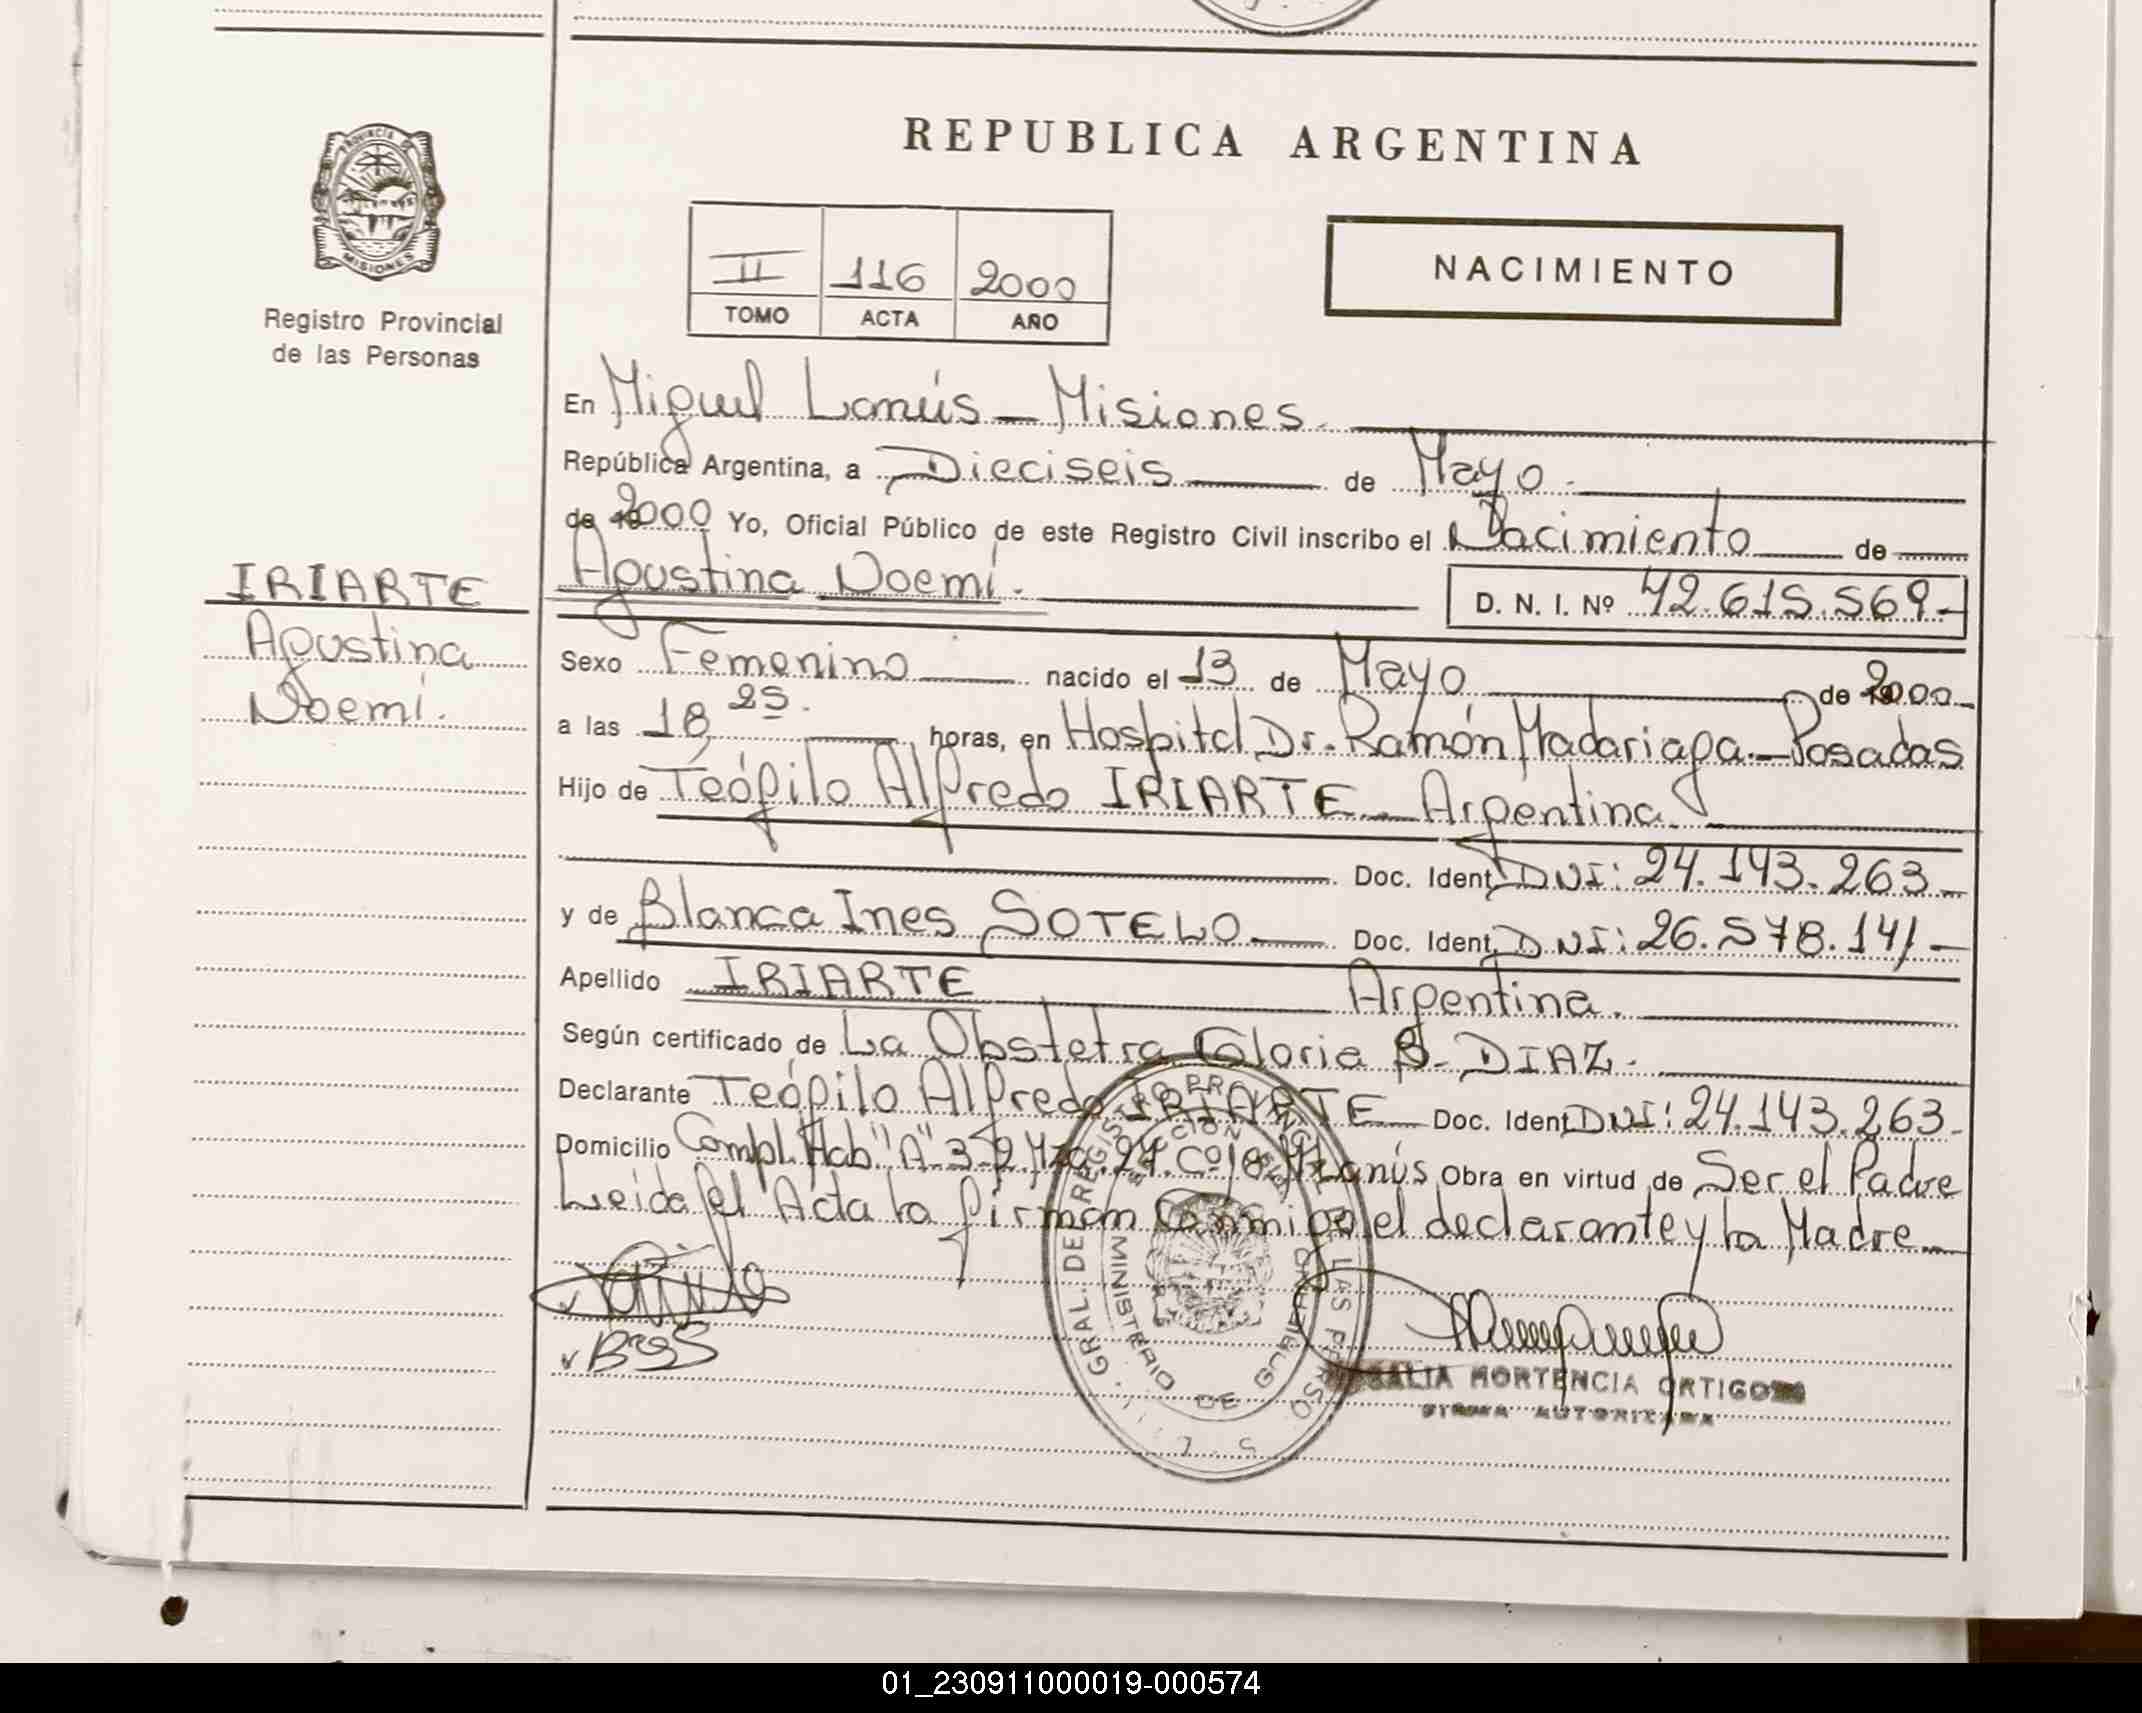 REPUBLICA ARGENTINA
PROVINCIA
MISIONES
Registro Provincial
de las Personas
II 116 2000
TOMO ACTA AÑO
NACIMIENTO
En Miguel Lanús - Misiones.
República Argentina, a Dieciseis de Mayo.
de 2000 Yo, Oficial Público de este Registro Civil inscribo el Nacimiento de
IRIARTE
Agustina
Noemí.
Agustina Noemí. D. N. I. Nº 42.615.569.-
Sexo Femenino nacido el 13 de Mayo de 2000
a las 18 25. horas, en Hospital Dr. Ramón Madariaga.-Posadas
Hijo de Teófilo Alfredo IRIARTE - Argentina.
Doc. Ident. DNI: 24.143.263-
y de Blanca Ines SOTELO Doc. Ident. DNI: 26.578.141-
Apellido IRIARTE Argentina.
Según certificado de La Obstetra Gloria B. DIAZ.
Declarante Teófilo Alfredo IRIARTE Doc. Ident. DNI: 24.143.263-
Domicilio Compl. Hab "A" 3-2 Mza. 27. Cº 18 M. Lanús Obra en virtud de Ser el Padre
Leida el Acta la firman Conmigo el declarante y la Madre
GRAL. DE REGISTRO PROVINCIAL DE LAS PERSO
MINISTERIO DE GOBIERNO
ALIA HORTENCIA ORTIGO
FIRMA AUTORIZADA
01_230911000019-000574